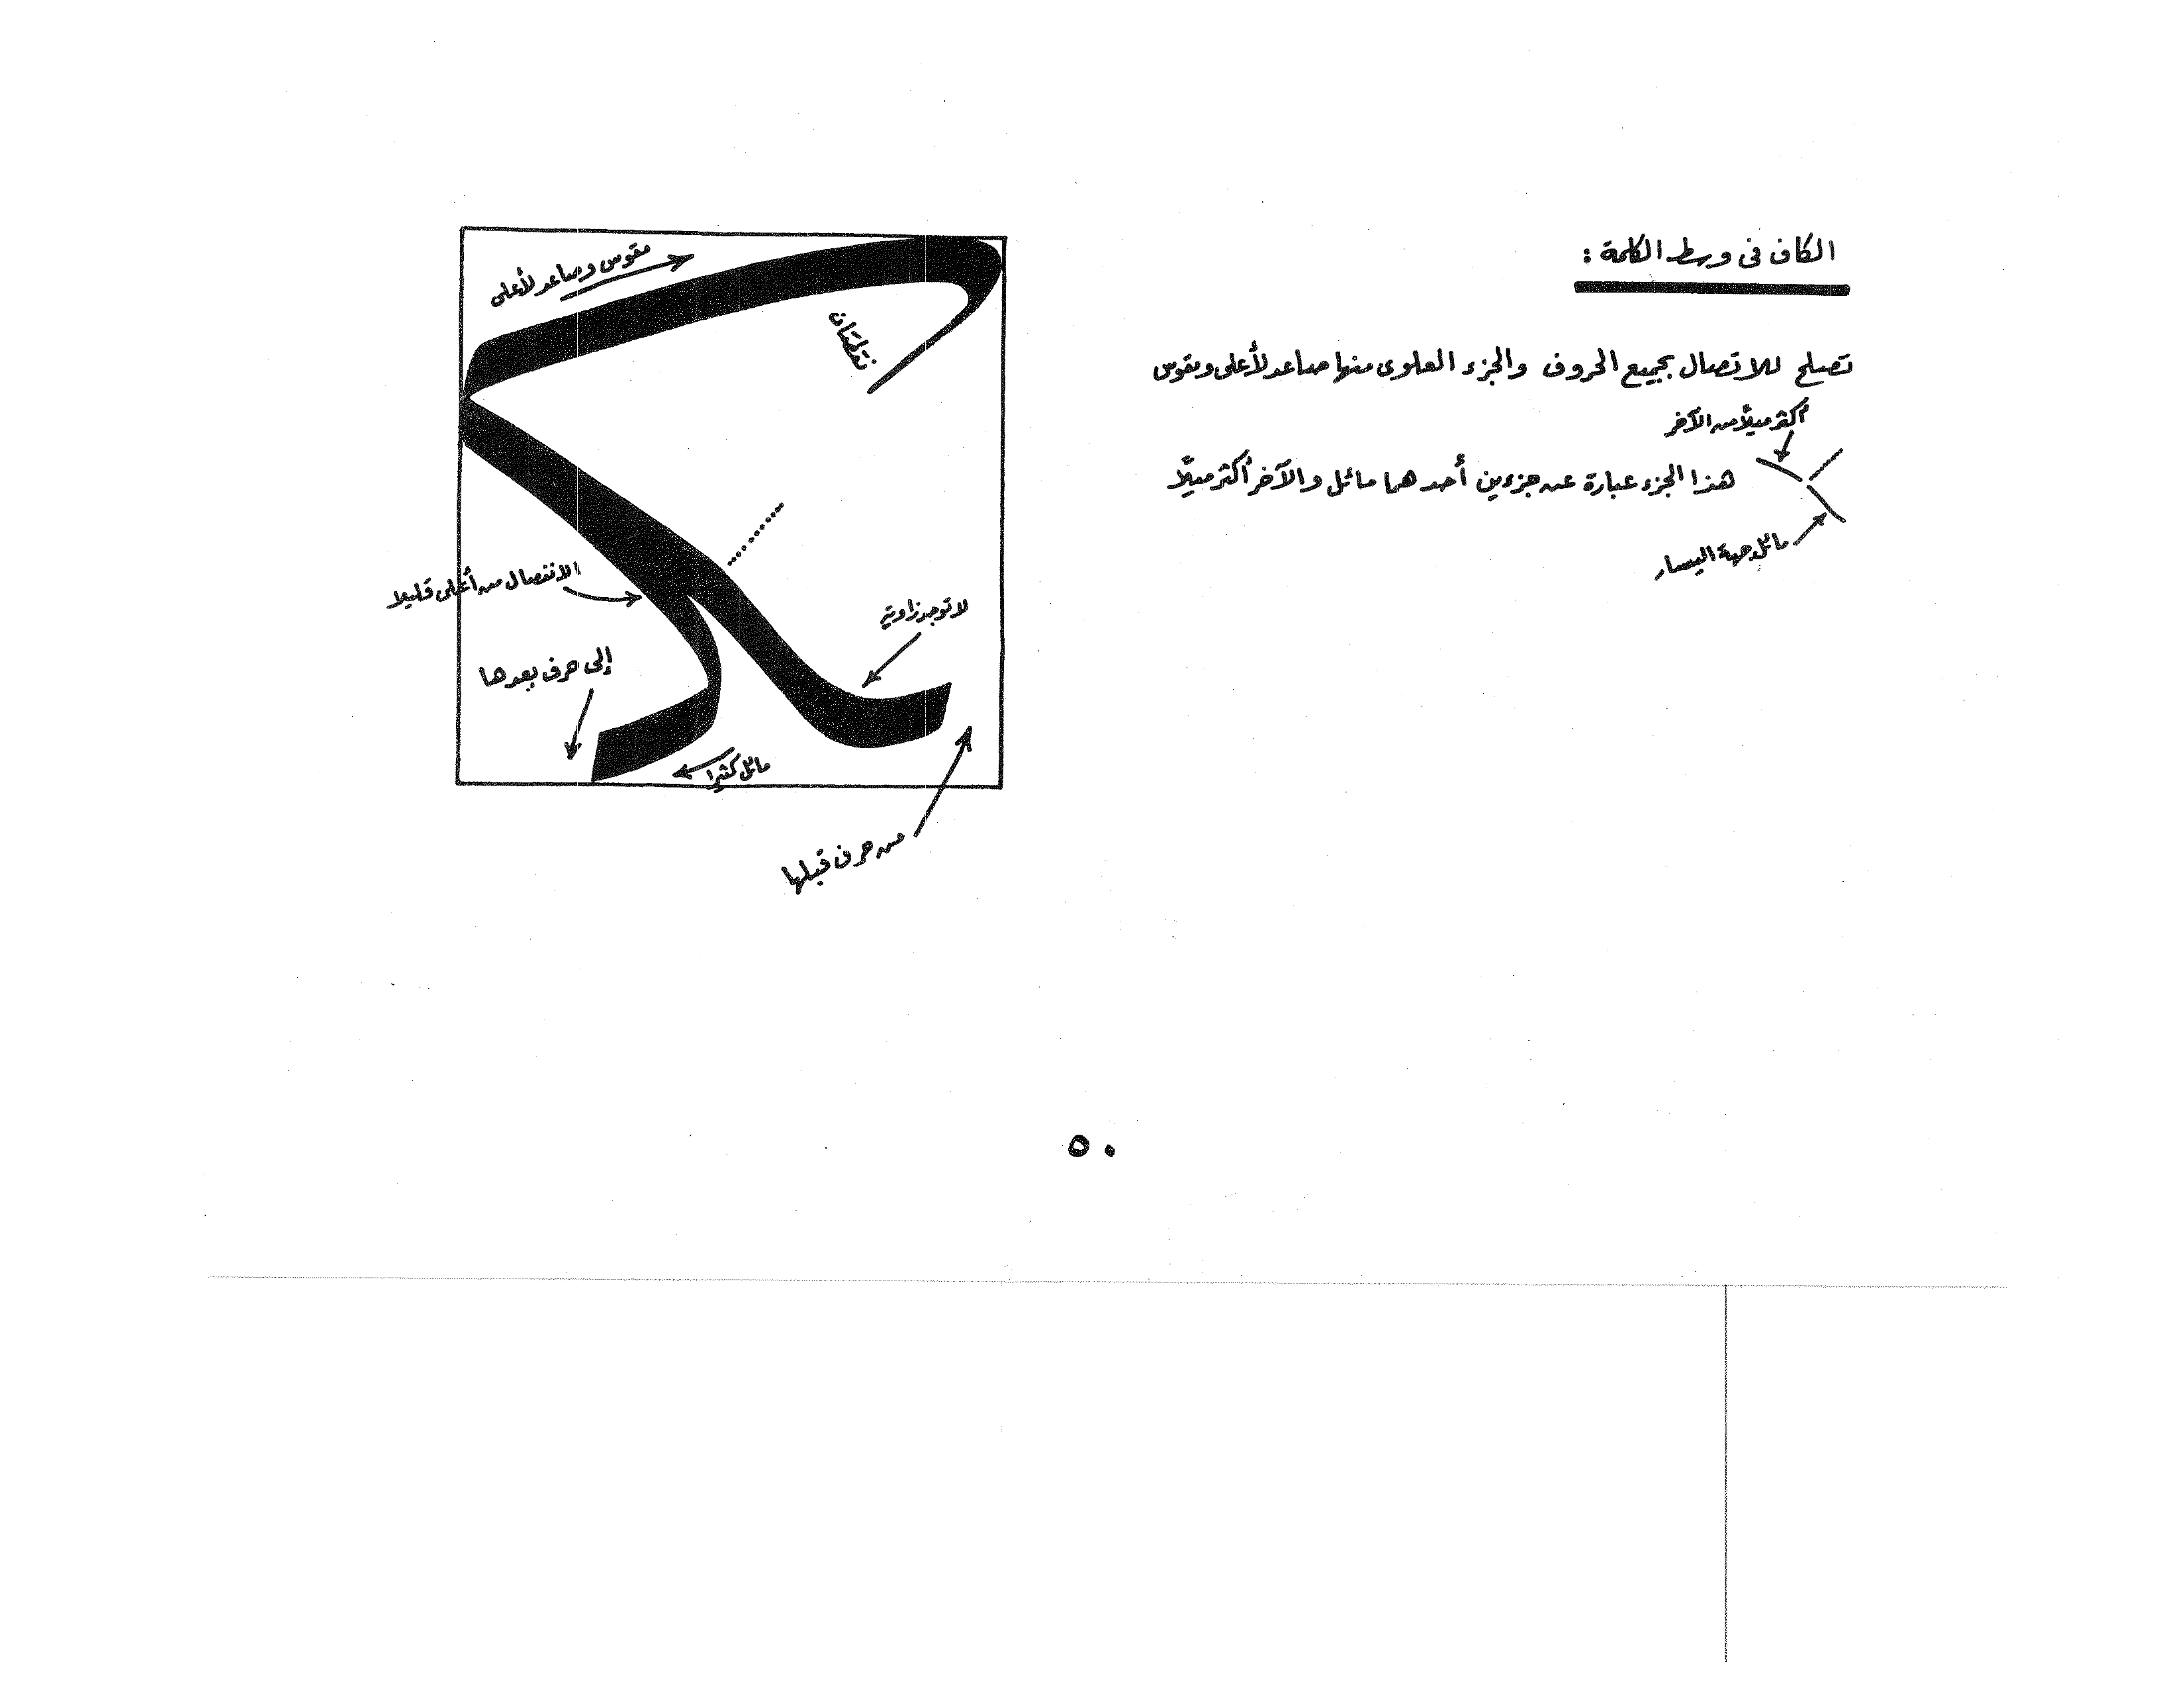 الكاف فى وسط الكلمة :
تصلح للاتصال بجميع الحروف والجزء العلوى منها صاعد لأعلى ومقوس
أكثر ميلاً من الآخر
هذا الجزء عبارة عن جزءين أحدهما مائل والآخر أكثر ميلاً
مائل جهة اليسار
مقوس وصاعد لأعلى
نقطتان
الانفصال من أعلى قليلا
لا توجد زاوية
إلى حرف بعدها
مائل كثيرا
من حرف قبلها
٥٠